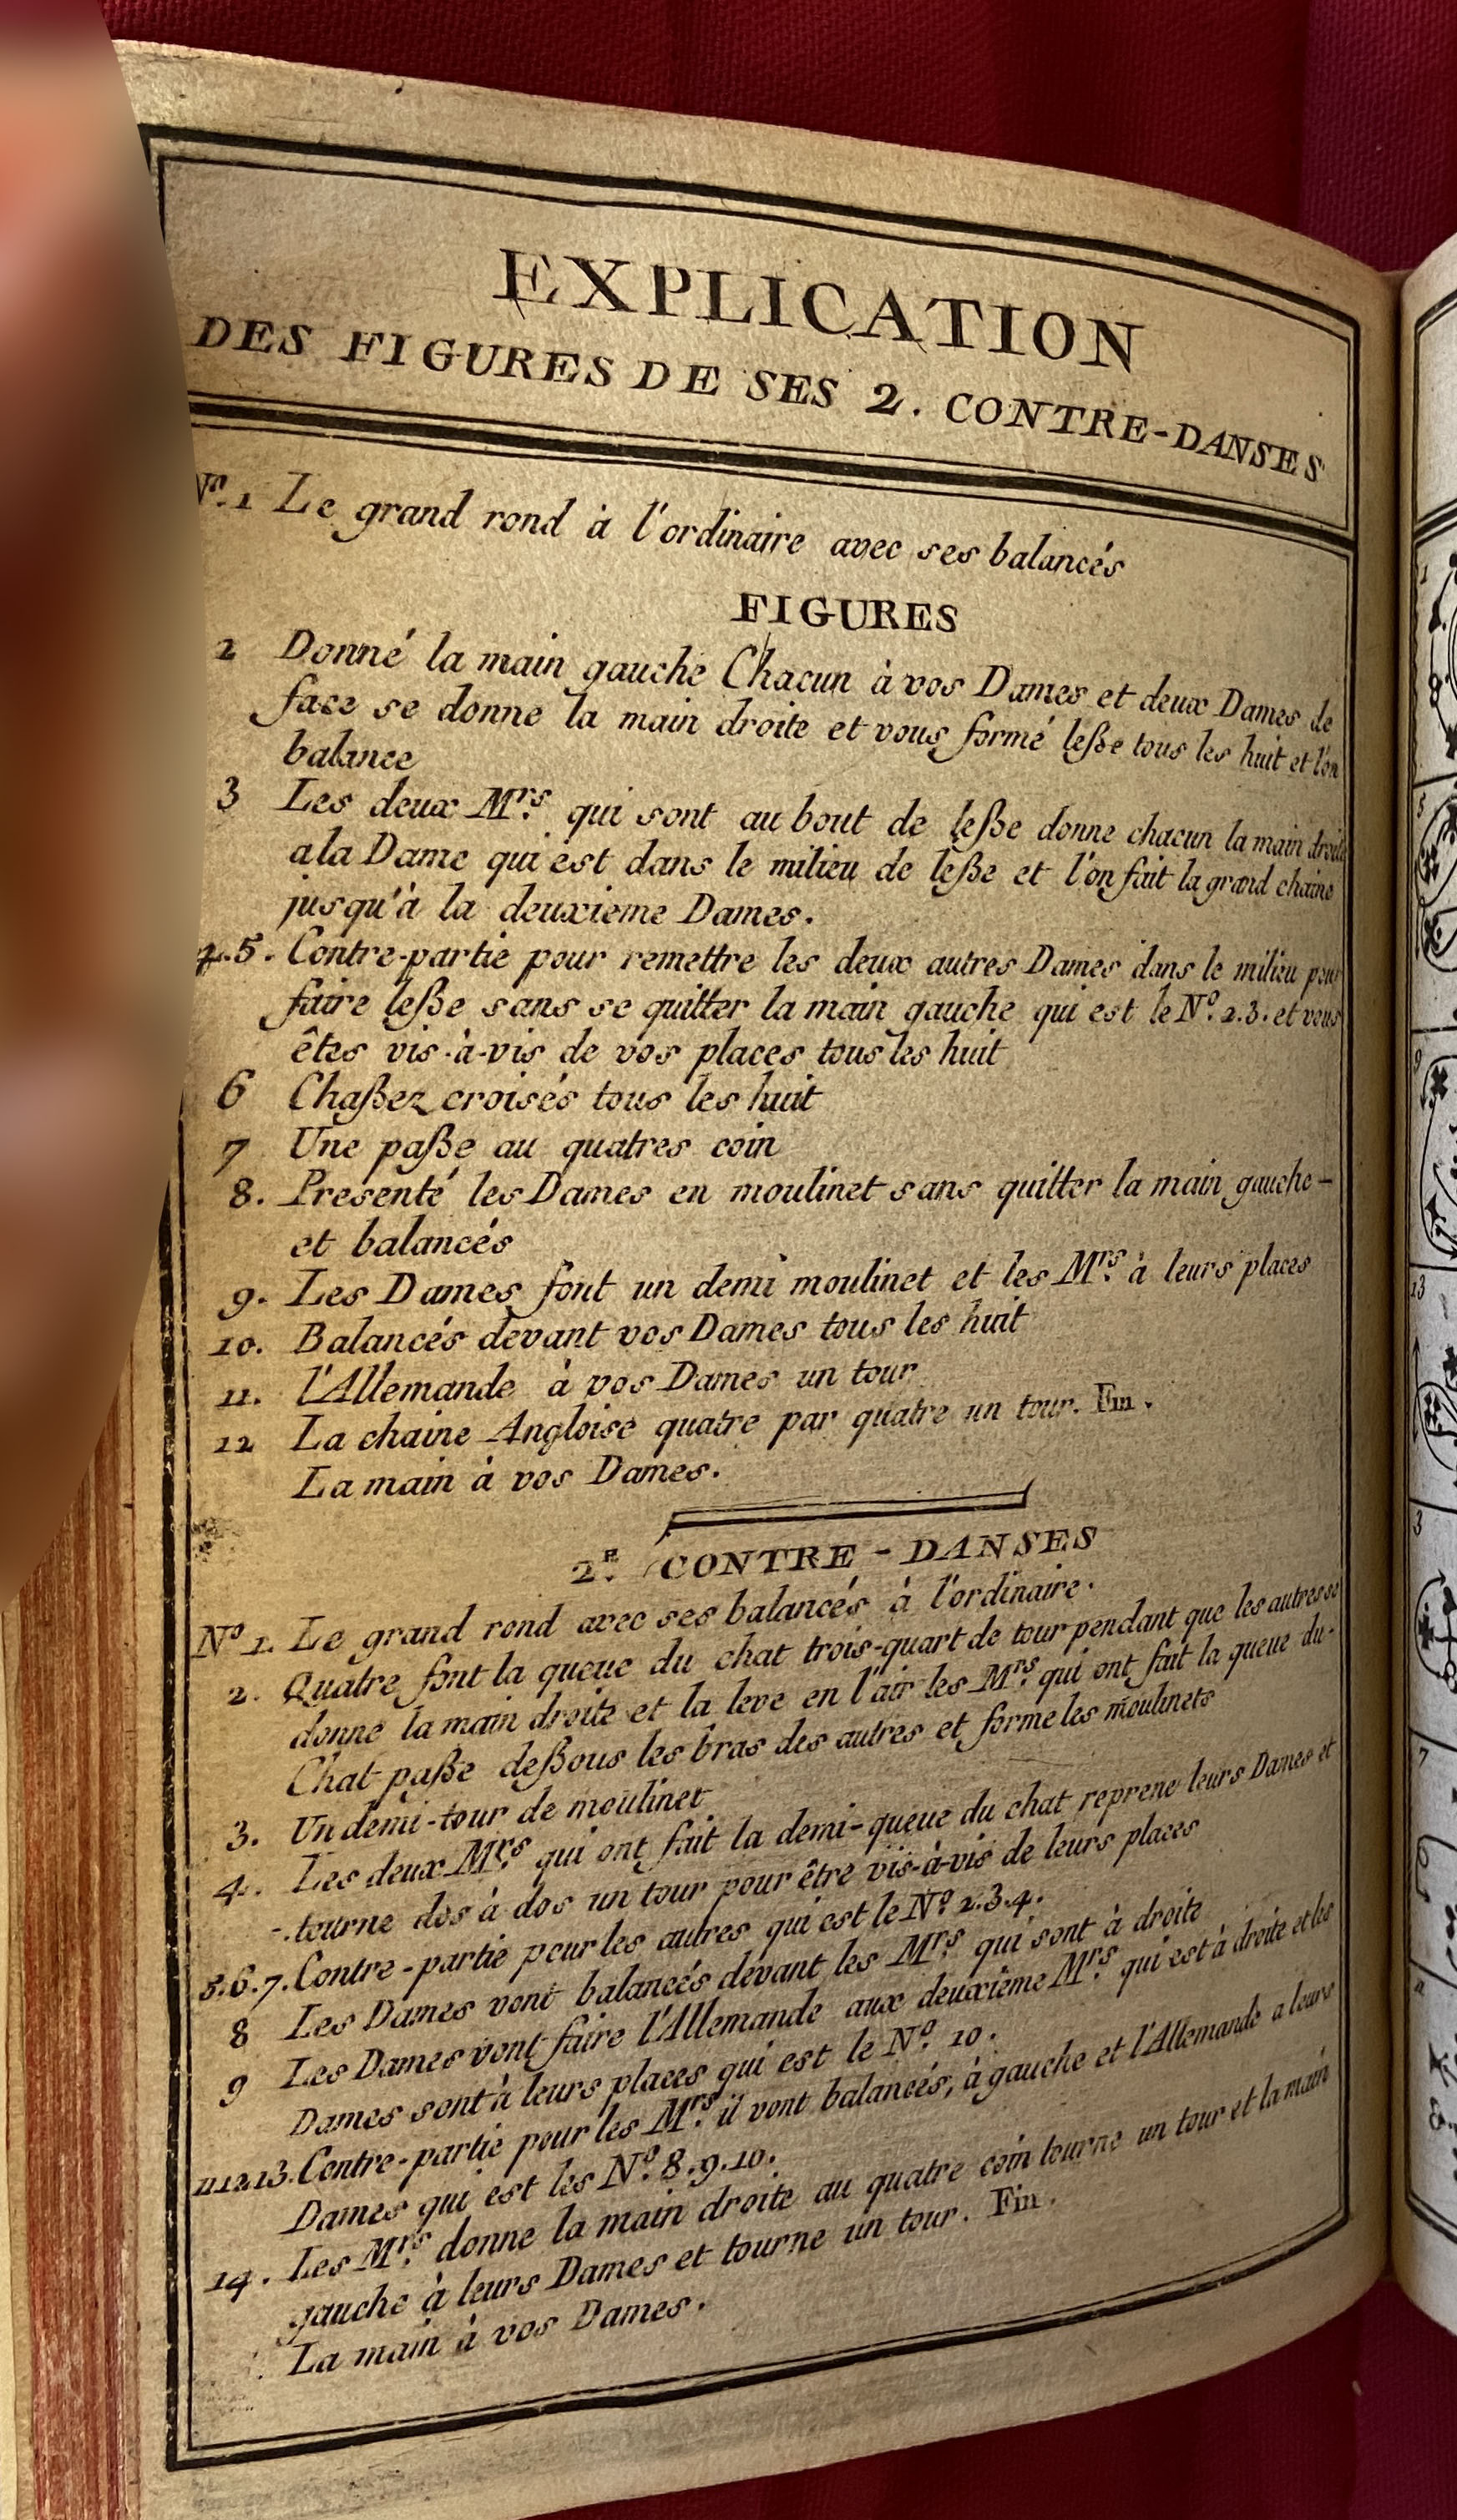 EXPLICATION
DES FIGURES DE SES 2. CONTRE-DANSES
Nº. 1 Le grand rond à l'ordinaire avec ses balancés
FIGURES
2 Donné la main gauche Chacun à vos Dames et deux Dames de
face se donne la main droite et vous formé leße tous les huit et l'on
balance
3 Les deux Mrs. qui sont au bout de leße donne chacun la main droite
a la Dame qui est dans le milieu de leße et l'on fait la grand chaine
jusqu'à la deuxieme Dames.
4.5. Contre-partie pour remettre les deux autres Dames dans le milieu pour
faire leße sans se quitter la main gauche qui est le Nº. 2.3. et vous
êtes vis-à-vis de vos places tous les huit
6 Chaßez croisés tous les huit
7 Une paße au quatres coin
8. Presenté les Dames en moulinet sans quitter la main gauche -
et balancés
9. Les Dames font un demi moulinet et les Mrs. à leurs places
10. Balancés devant vos Dames tous les huit
11. l'Allemande à vos Dames un tour
12 La chaine Angloise quatre par quatre un tour. Fin.
La main à vos Dames.
2e. CONTRE-DANSES
Nº 1. Le grand rond avec ses balancés à l'ordinaire.
2. Quatre font la queue du chat trois-quart de tour pendant que les autres se
donne la main droite et la leve en l'air les Mrs. qui ont fait la queue du-
Chat paße deßous les bras des autres et forme les moulinets
3. Un demi-tour de moulinet
4. Les deux Mrs. qui ont fait la demi-queue du chat reprene leurs Dames et
-. tourne dos à dos un tour pour être vis-à-vis de leurs places
5.6.7. Contre-partie pour les autres qui est le Nº. 2.3.4.
8 Les Dames vont balancés devant les Mrs qui sont à droite
9 Les Dames vont faire l'Allemande aux deuxième Mrs. qui est à droite et les
Dames sont à leurs places qui est le Nº. 10.
11 12 13. Contre-partie pour les Mrs. il vont balancés, à gauche et l'Allemande a leurs
Dames qui est les Nº. 8.9.10.
14. Les Mrs. donne la main droite au quatre coin tourne un tour et la main
gauche à leurs Dames et tourne un tour. Fin.
La main à vos Dames.
1
5
9
13
3
7